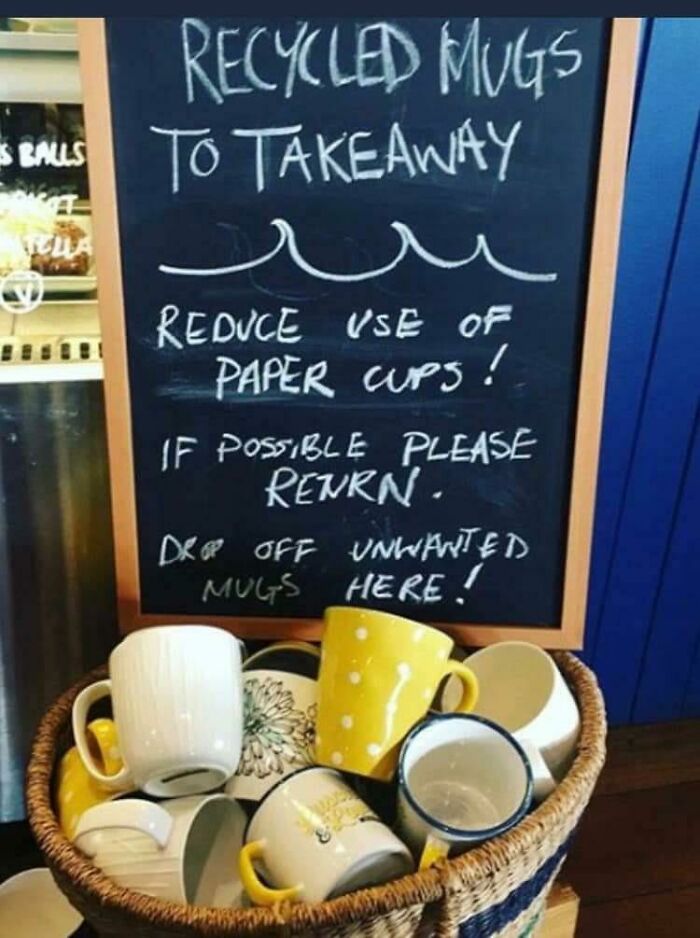 RECYCLED MUGS
TO TAKEAWAY
REDUCE USE OF
PAPER CUPS!
IF POSSIBLE PLEASE
RETURN.
DROP OFF UNWANTED
MUGS HERE!
BALLS
V